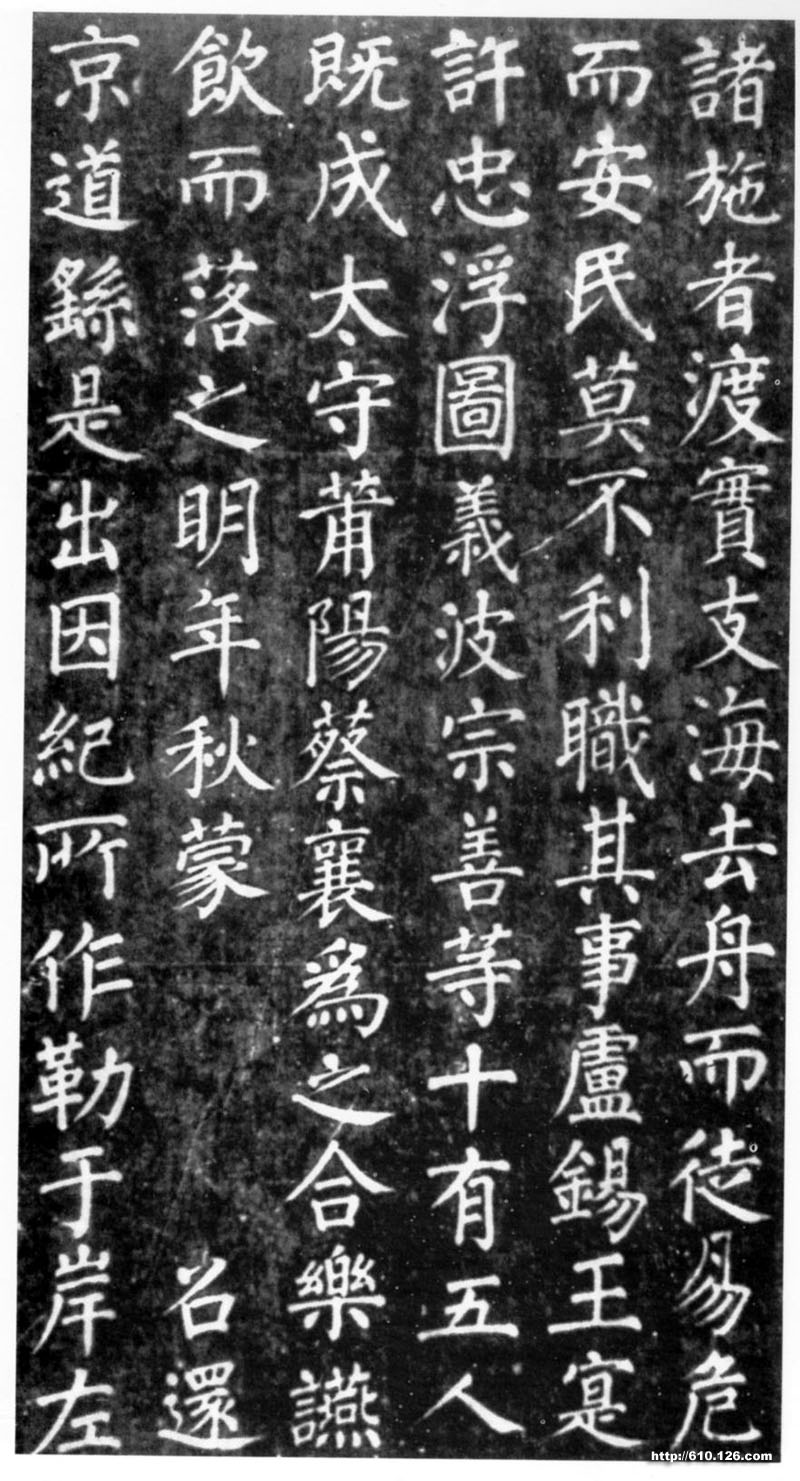 諸施者渡實支海去舟而徒易危
而安民莫不利職其事盧錫王寔
許忠浮圖義波宗善等十有五人
既成太守莆陽蔡襄爲之合樂讌
飲而落之明年秋蒙召還
京道繇是出因紀所作勒于岸左
http://610.126.com